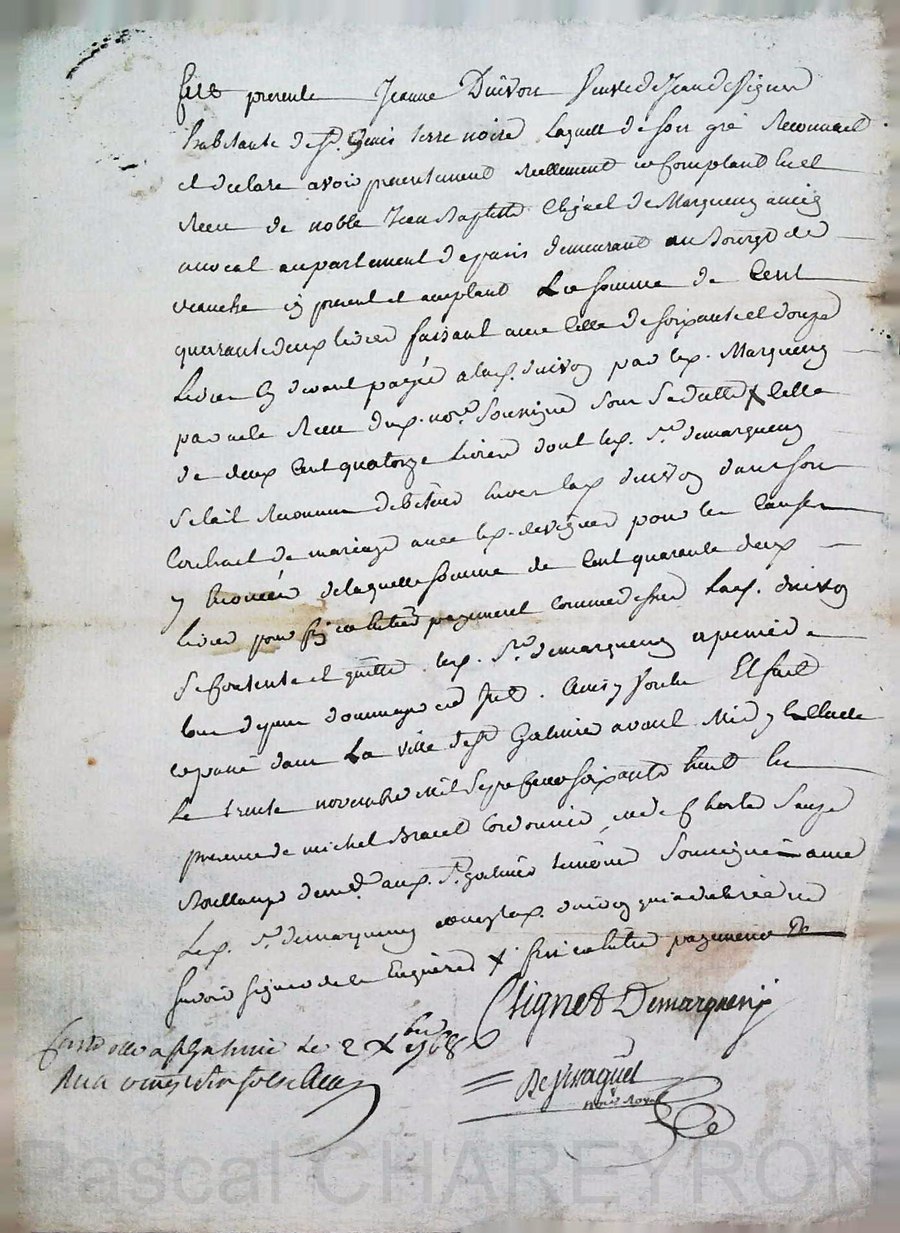 fut presente Jeanne Duivon Veuve de Jean deVigne
habitante de St. Genis terre noire laquelle de son gré Reconnaet
et declare avoir presentement reellement et Comptant
Receu de noble Jean Baptiste Clignet de Marqueny
avocat au parlement de paris demeurant au Bourg de
present et aceptant La somme de Cent
quarante deux livres faisant avec Celle de soixante et douze
Livres cy devant payée a lad. duivon par led. Marqueny
par acte Receu dud. nore. soussigné sous sa datte X Celle
de deux Cent quatorze Livres dont led. Sr. demarqueny
setait reconnu debiteur envers lad. duivon dans son
Contract de mariage avec led. devigne pour les Causes
y enoncées de laquelle somme de Cent quarante deux
livres pour payement comme dessus Lad. duivon
se Contente et quitte led. Sr. demarqueny a peine de
tous depens dommages Ainsy voulu Et fait
et passé dans La ville de St Galmier avant Midy
Le trente novembre Mil Sept Cent soixante huit En
presence de michel Cordonnier, et de Charles
demt. aud. St galmier temoins Soussignés avec
Led. Sr. demarqueny non lad. duivon qui a declaré ne
savoir signer de ce Enquise X payement
Clignet Demarqueny
Controllé a St Galmier Le 2 Xbre 1768
Reçu
nore Royal
Pascal CHAREYRON